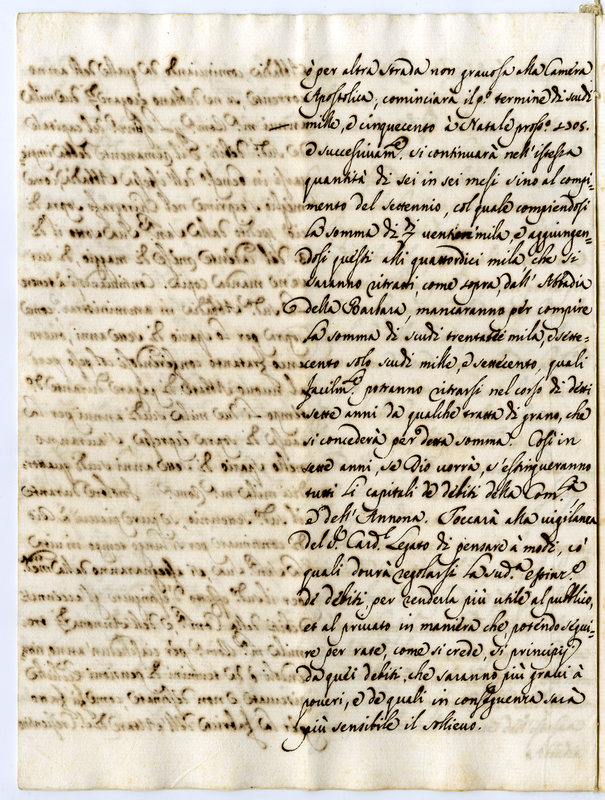 ò per altra strada non gravosa alla Camera
Apostolica, cominciarà il p.º termine di scudi
mille, e cinquecento à Natale pross.º 1705.
e successivam.e si continuarà nell'istessa
quantità di sei in sei mesi sino al compi-
mento del settennio, col quale compiendosi
la somma di ventun mila, e aggiungen-
dosi questi alli quattordici mila che si
saranno ritratti, come sopra, dall'Abbadia
della Barbara, mancaranno per compire
la somma di scudi trentasette mila, e sette-
cento solo scudi mille, e settecento, quali
facilm.e potranno ritrarsi nel corso di detti
sette anni da qualche tratta di grano, che
si concederà per detta somma. Così in
sette anni, se Dio vorrà, s'estingueranno
tutti li capitali de debiti della Com.tà
e dell'Annona. Toccarà alla vigilanza
del S.r Card.l Legato di pensare à modi, co'
quali dovrà regolarsi la sud.a estinz.e
de debiti, per renderla più utile al publico,
et al privato in maniera che, potendo segui-
re per rate, come si crede, si principij
da quei debiti, che saranno più gravi à
poveri, e de quali in conseguenza sarà
più sensibile il sollievo.